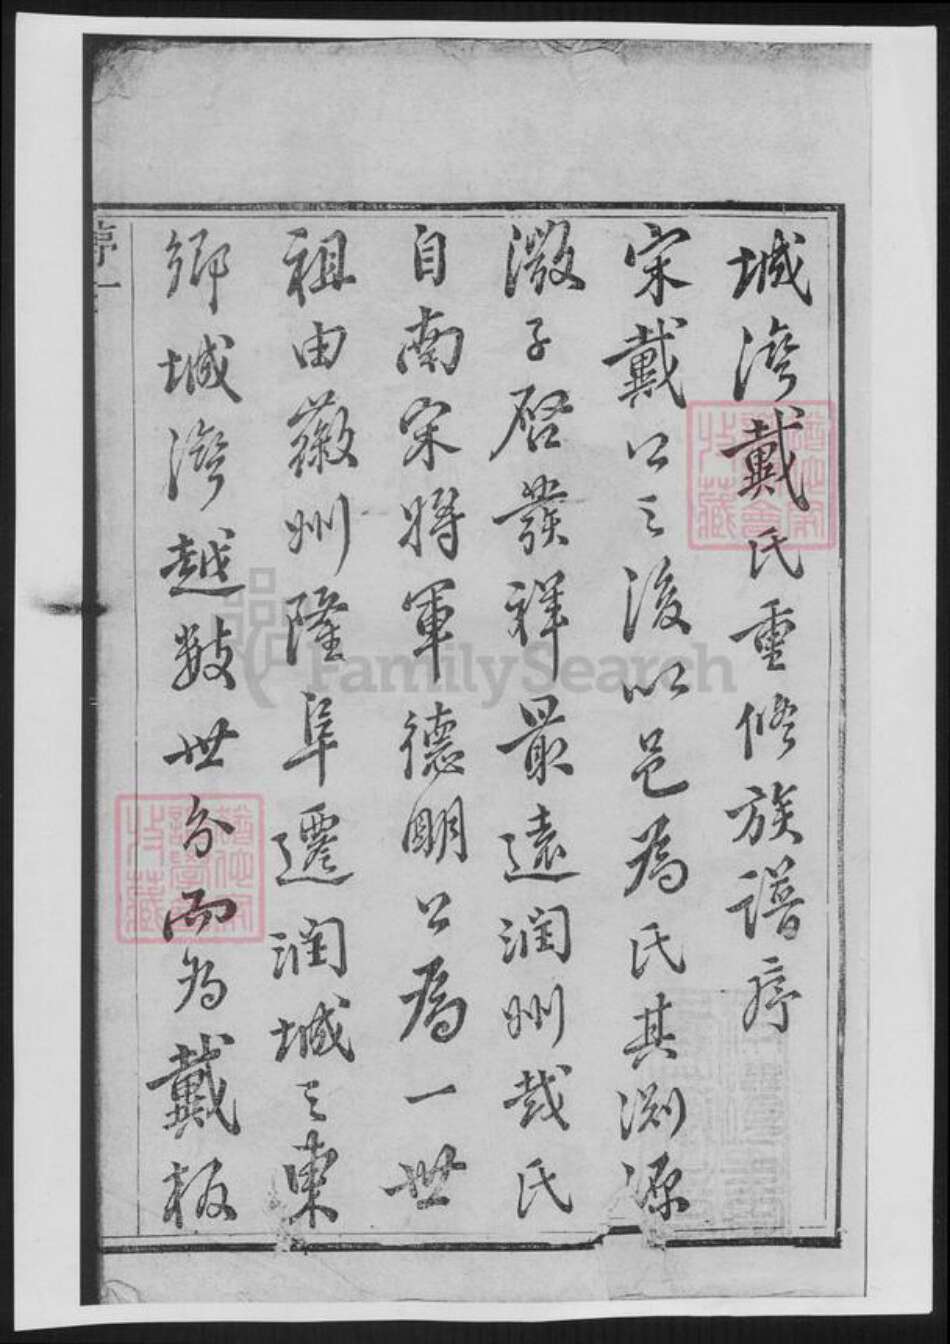 城灣戴氏重修族譜序
宋戴公之後以邑為氏其渊源
微子啓發祥最遠润州戴氏
自南宋將軍德明公為一世
祖由徽州隆阜遷润城之東
鄉城灣越数世分而为戴板
序一
FamilySearch